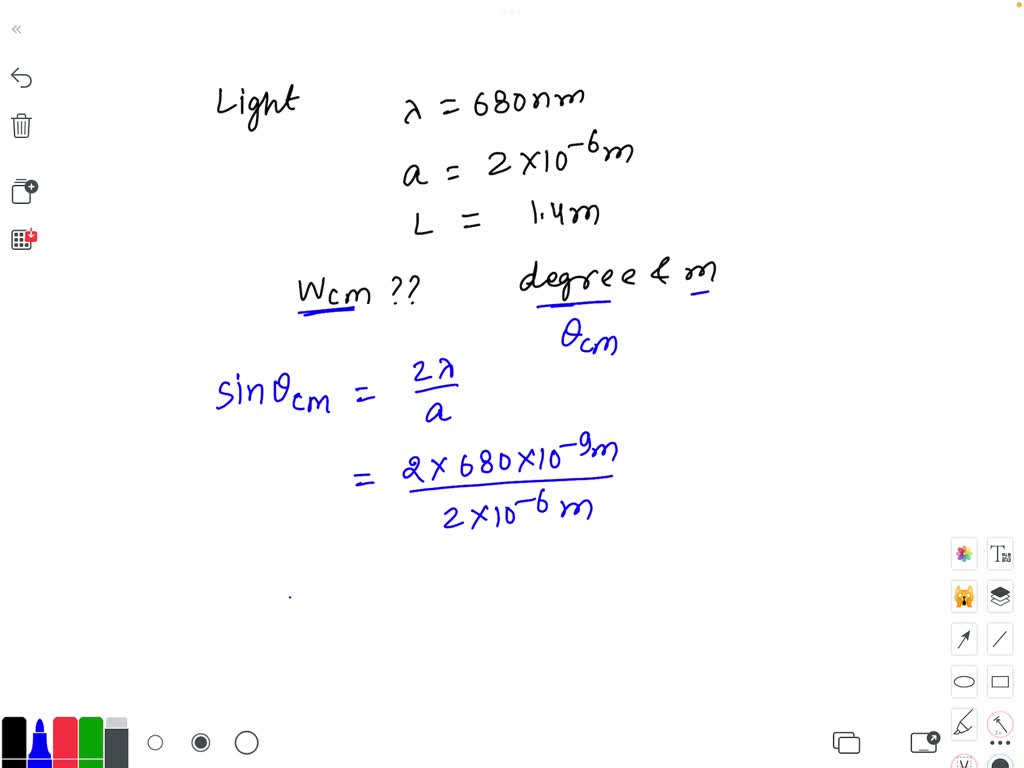 Light λ = 680nm
a = 2×10⁻⁶m
L = 1.4m
Wcm ?? degree & m
θcm
sinθcm = 2λ/a
= 2×680×10⁻⁹m / 2×10⁻⁶m